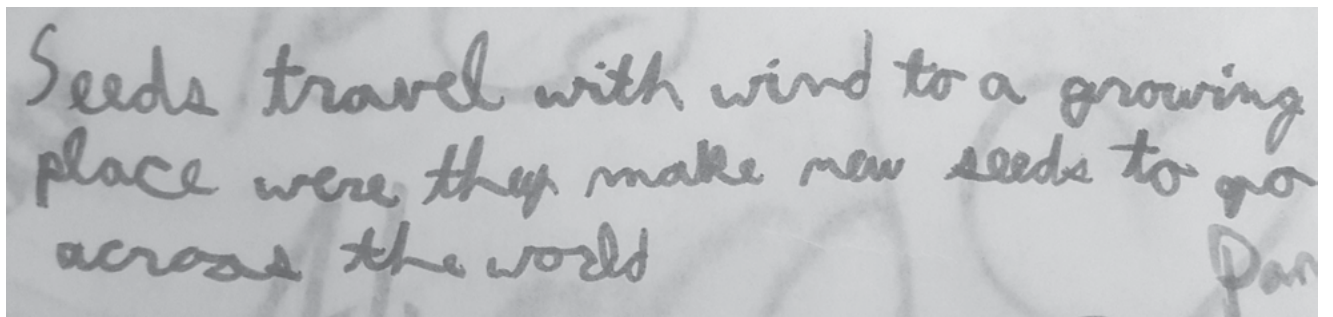 Seeds travel with wind to a growing
place were they make new seeds to go
across the world